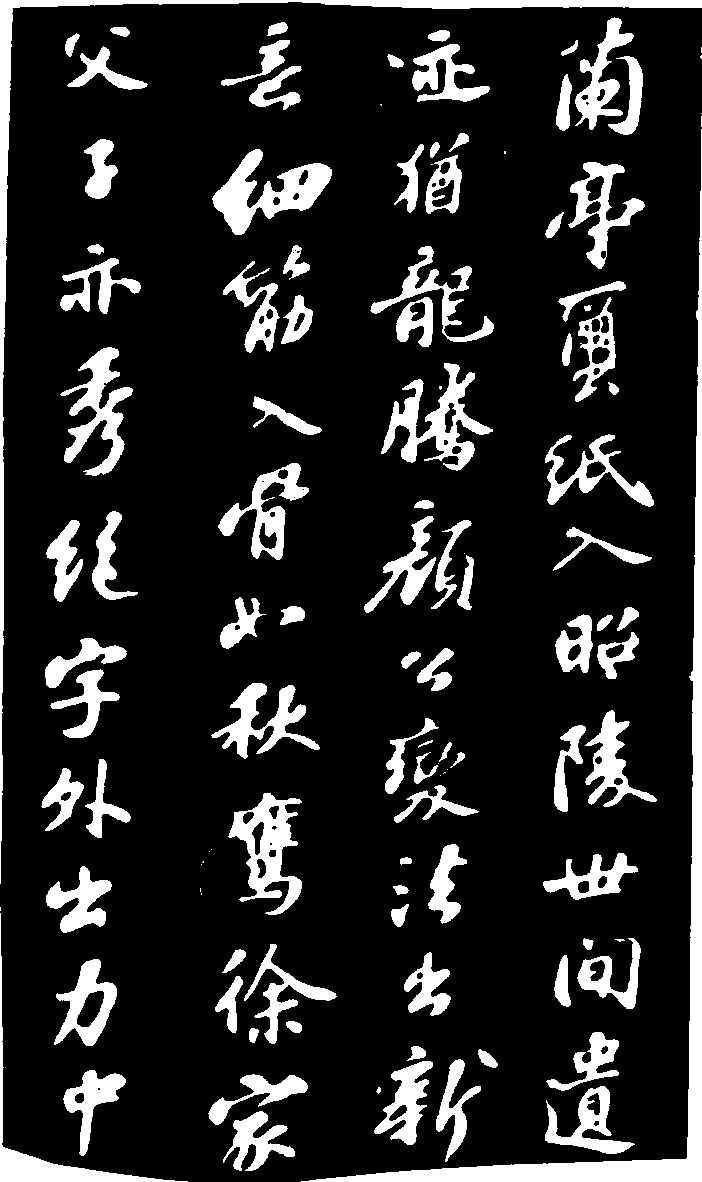 蘭亭繭紙入昭陵世間遺
迹猶龍騰顏公變法出新
意細筋入骨如秋鷹徐家
父子亦秀絕字外出力中